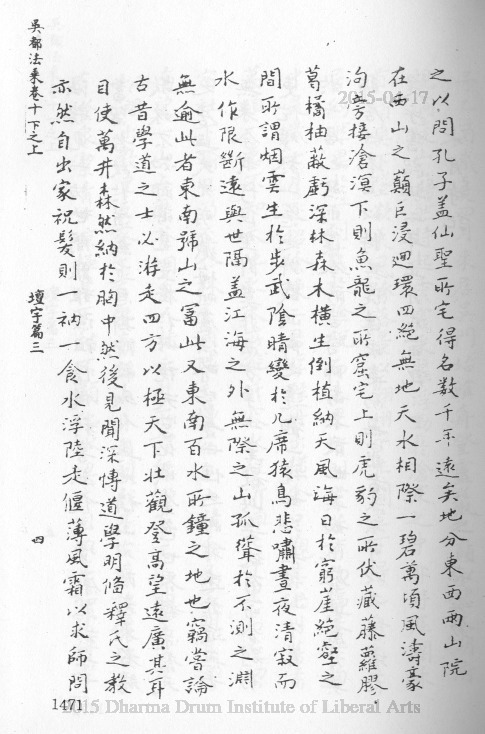 之以問孔子盖仙聖所宅得名数千年遠矣地分東西兩山院
在西山之巔巨浸迴環四絕無地天水相際一碧萬頃風濤豪
洶旁接滄溟下則魚龍之所窟宅上則虎豹之所伏藏藤蘿膠
葛橘柚蔽虧深林森木橫生倒植納天風海日於窮崖絕壑之
間所謂烟雲生於步武陰晴變於几席猿鳥悲嘯晝夜清寂而
水作限斷遠與世隔盖江海之外無際之山孤聳於不測之淵
無逾此者東南號山之冨此又東南百水所鐘之地也竊嘗論
古昔學道之士必游走四方以極天下壯觀登高望遠廣其耳
目使萬井森然納於胸中然後見聞深博道學明俻釋氏之教
亦然自出家祝髮則一衲一食水浮陸走偃薄風霜以求師問
吳都法乘卷十下之上
壇宇篇三
四
1471
2015-04-17
2015 Dharma Drum Institute of Liberal Arts